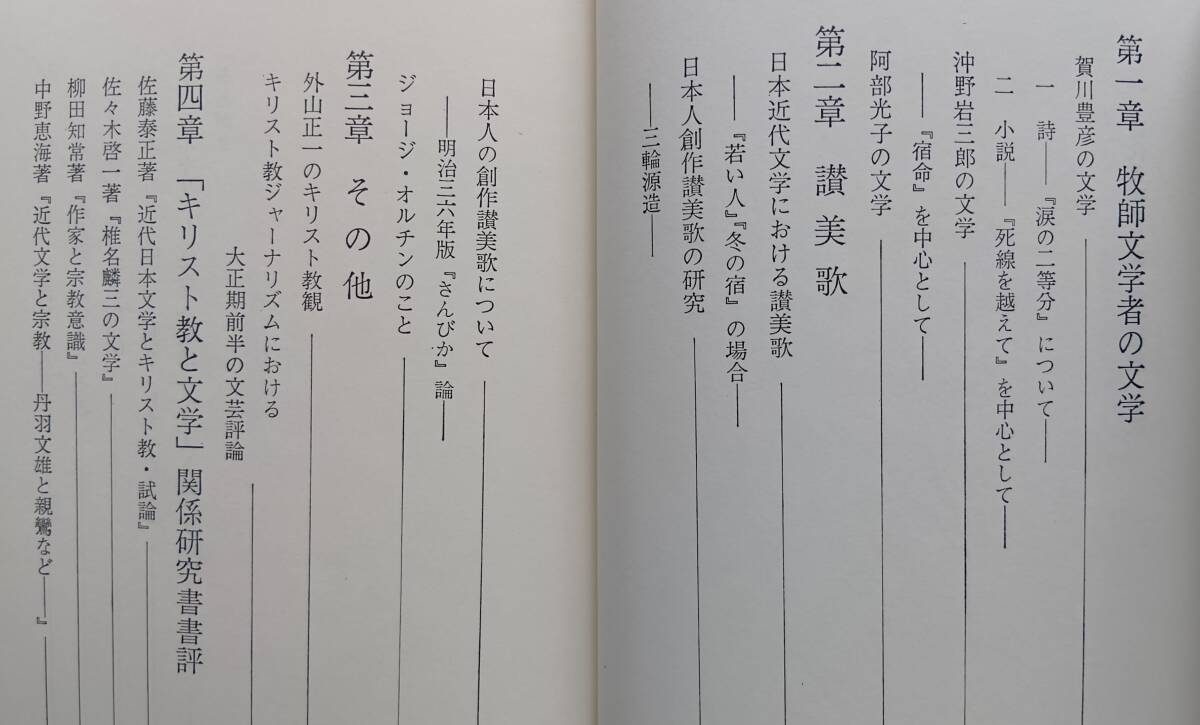 第一章　牧師文学者の文学
賀川豊彦の文学
一　詩——『涙の二等分』について——
二　小説——『死線を越えて』を中心として——
沖野岩三郎の文学
——『宿命』を中心として——
阿部光子の文学
第二章　讃美歌
日本近代文学における讃美歌
——『若い人』『冬の宿』の場合——
日本人創作讃美歌の研究
——三輪源造——
日本人の創作讃美歌について
——明治三六年版『さんびか』論——
ジョージ・オルチンのこと
第三章　その他
外山正一のキリスト教観
キリスト教ジャーナリズムにおける
大正期前半の文芸評論
第四章　「キリスト教と文学」関係研究書書評
佐藤泰正著『近代日本文学とキリスト教・試論』
佐々木啓一著『椎名麟三の文学』
柳田知常著『作家と宗教意識』
中野恵海著『近代文学と宗教——丹羽文雄と親鸞など——』